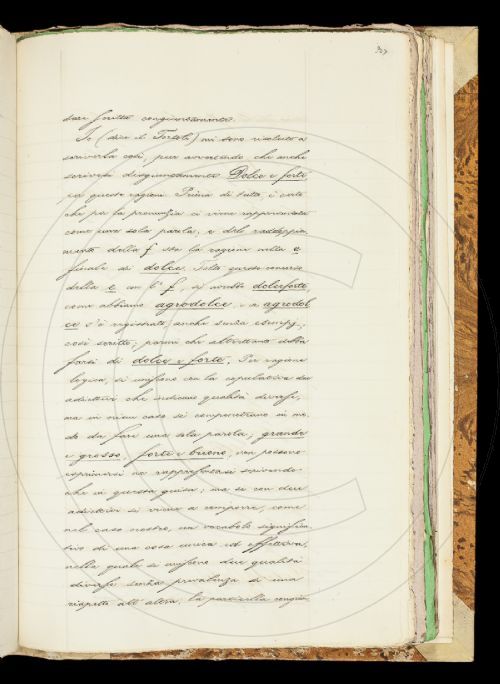 farsi scritto congiuntamente.
Io (dice il Tortoli) mi sono risoluto a
scriverla così, pure avvertendo che anche
scrivesi disgiuntamente Dolce e forte
per queste ragioni. Prima di tutto, è certo
che per la pronunzia ci viene rappresentata
come una sola parola, e del raddoppia-
mento della f sta la ragione nella e
finale di dolce. Tutto questo
della e con l' f, si avrebbe dolceforte,
come abbiamo agrodolce, e a agrodol
ce s'è registrato anche senza esempj,
così scritto; parmi che altrettanto debba
farsi di dolce e forte. Per ragione
logica, si unisce con la copulativa due
adiettivi che indicano qualità diverse,
ma in niun caso si compenetrano in mo-
do da fare una sola parola; grande
e grosso, forte e buono, non possono
esprimersi nè rappresentarsi scrivendo
che in questa guisa; ma se con due
adiettivi si viene a comporre, come
nel caso nostro, un vocabolo significa-
tivo di una cosa unica ed effettiva,
nella quale si uniscono due qualità
diverse senza prevalenza di una
rispetto all' altra, la particella congiun